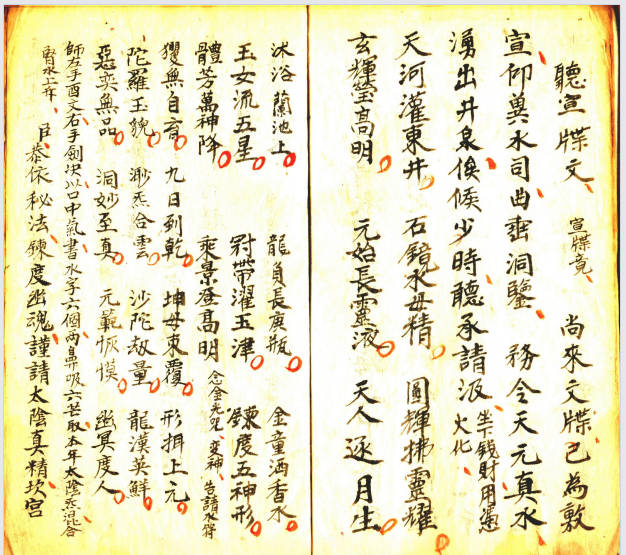 聽宣牒文 宣牒竟 尚來文牒已為敷
宣仰奠水司曲垂洞鑒 務令天元真水
湧出井泉俟候少時聽承請派 牒錢財用憑火化
天河灌東井 石鏡水母精 圓輝拂靈耀
玄輝瑩高明 元始長靈液 天人逐月生
沐浴蘭池上 龍負長庚瓶 金童洒香水
玉女流五星 冠帶濯玉津 鍊度五神形
體芳萬神降 乘景登高明 念金光咒 變神 告請水符
玃無自育 九日到乾 坤母東覆 形摄上元
陀羅玉貌 渺炁合雲 沙陀劫量 龍漢英鮮
惡奕無品 洞妙至真 元範恢漠 幽冥度人
師左手酉文右手劍决以口中氣書水字六個两鼻吸六炁取本年太陰炁混合
腎水上升 臣恭依秘法鍊度幽魂謹請太陰真精坎宮